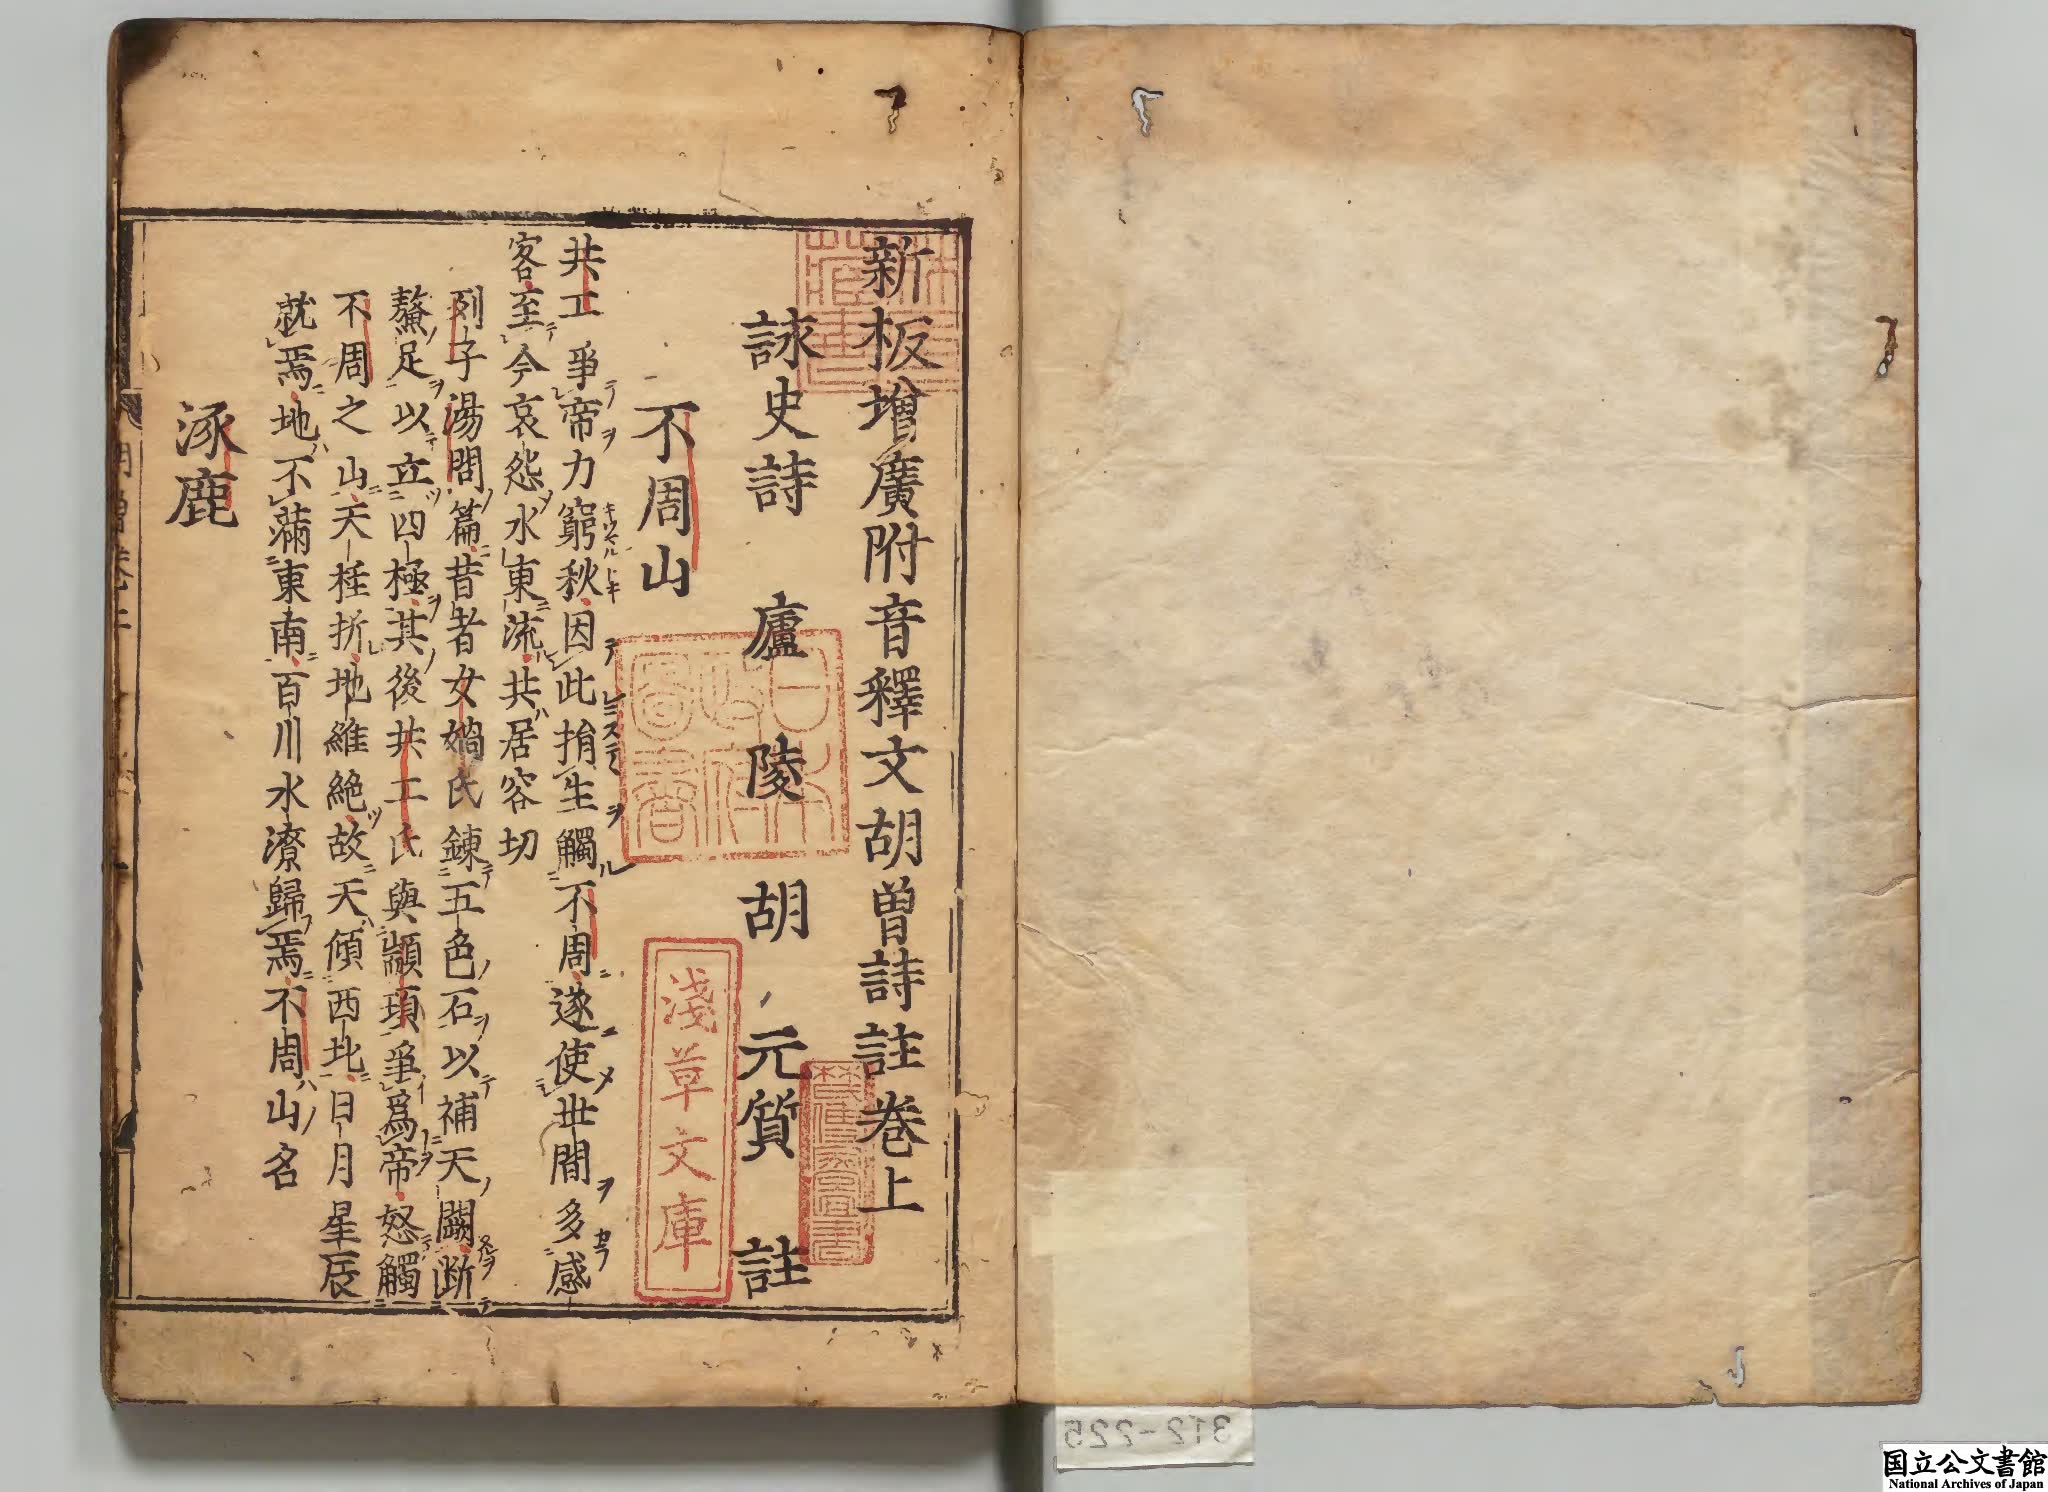 新板增廣附音釋文胡曽詩註卷上
詠史詩　廬陵　胡元質　註
不周山
共工爭帝力窮秋因此捐生觸不周遂使世間多感
客至今哀怨水東流共居容切
列子湯問篇昔者女媧氏鍊五色石以補天闕断
鼇足以立四極其後共工氏與顓頊爭爲帝怒觸
不周之山天柱折地維絶故天傾西北日月星辰
就焉地不滿東南百川水潦歸焉不周山名
涿鹿
淺草文庫
日本政府圖書
312-225
国立公文書館
National Archives of Japan